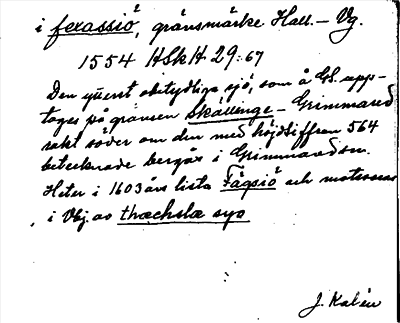 i ferassiö, gränsmärke Hall. – Vg.
1554 HSkH 29:67
Den ytterst obetydliga sjö, som å GS. upp-
tages på gränsen Skällenge – Grimmared
rakt söder om den med höjdsiffran 564
betecknade bergås i Grimmaredsn.
Heter i 1603 års lista Fägsiö och motsvaras
i Vbj. av thæchslæ syo
J. Kalén